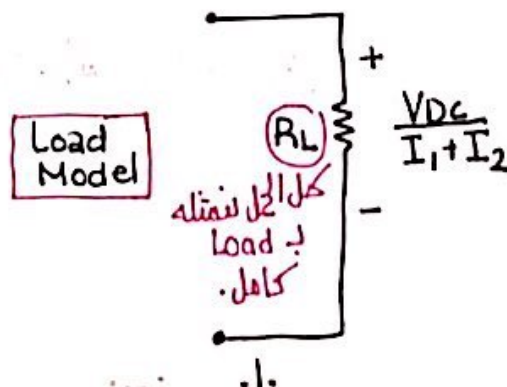 Load
Model
RL
+
VDC
I1 + I2
-
كل الحمل نمثله
بـ Load
كامل.